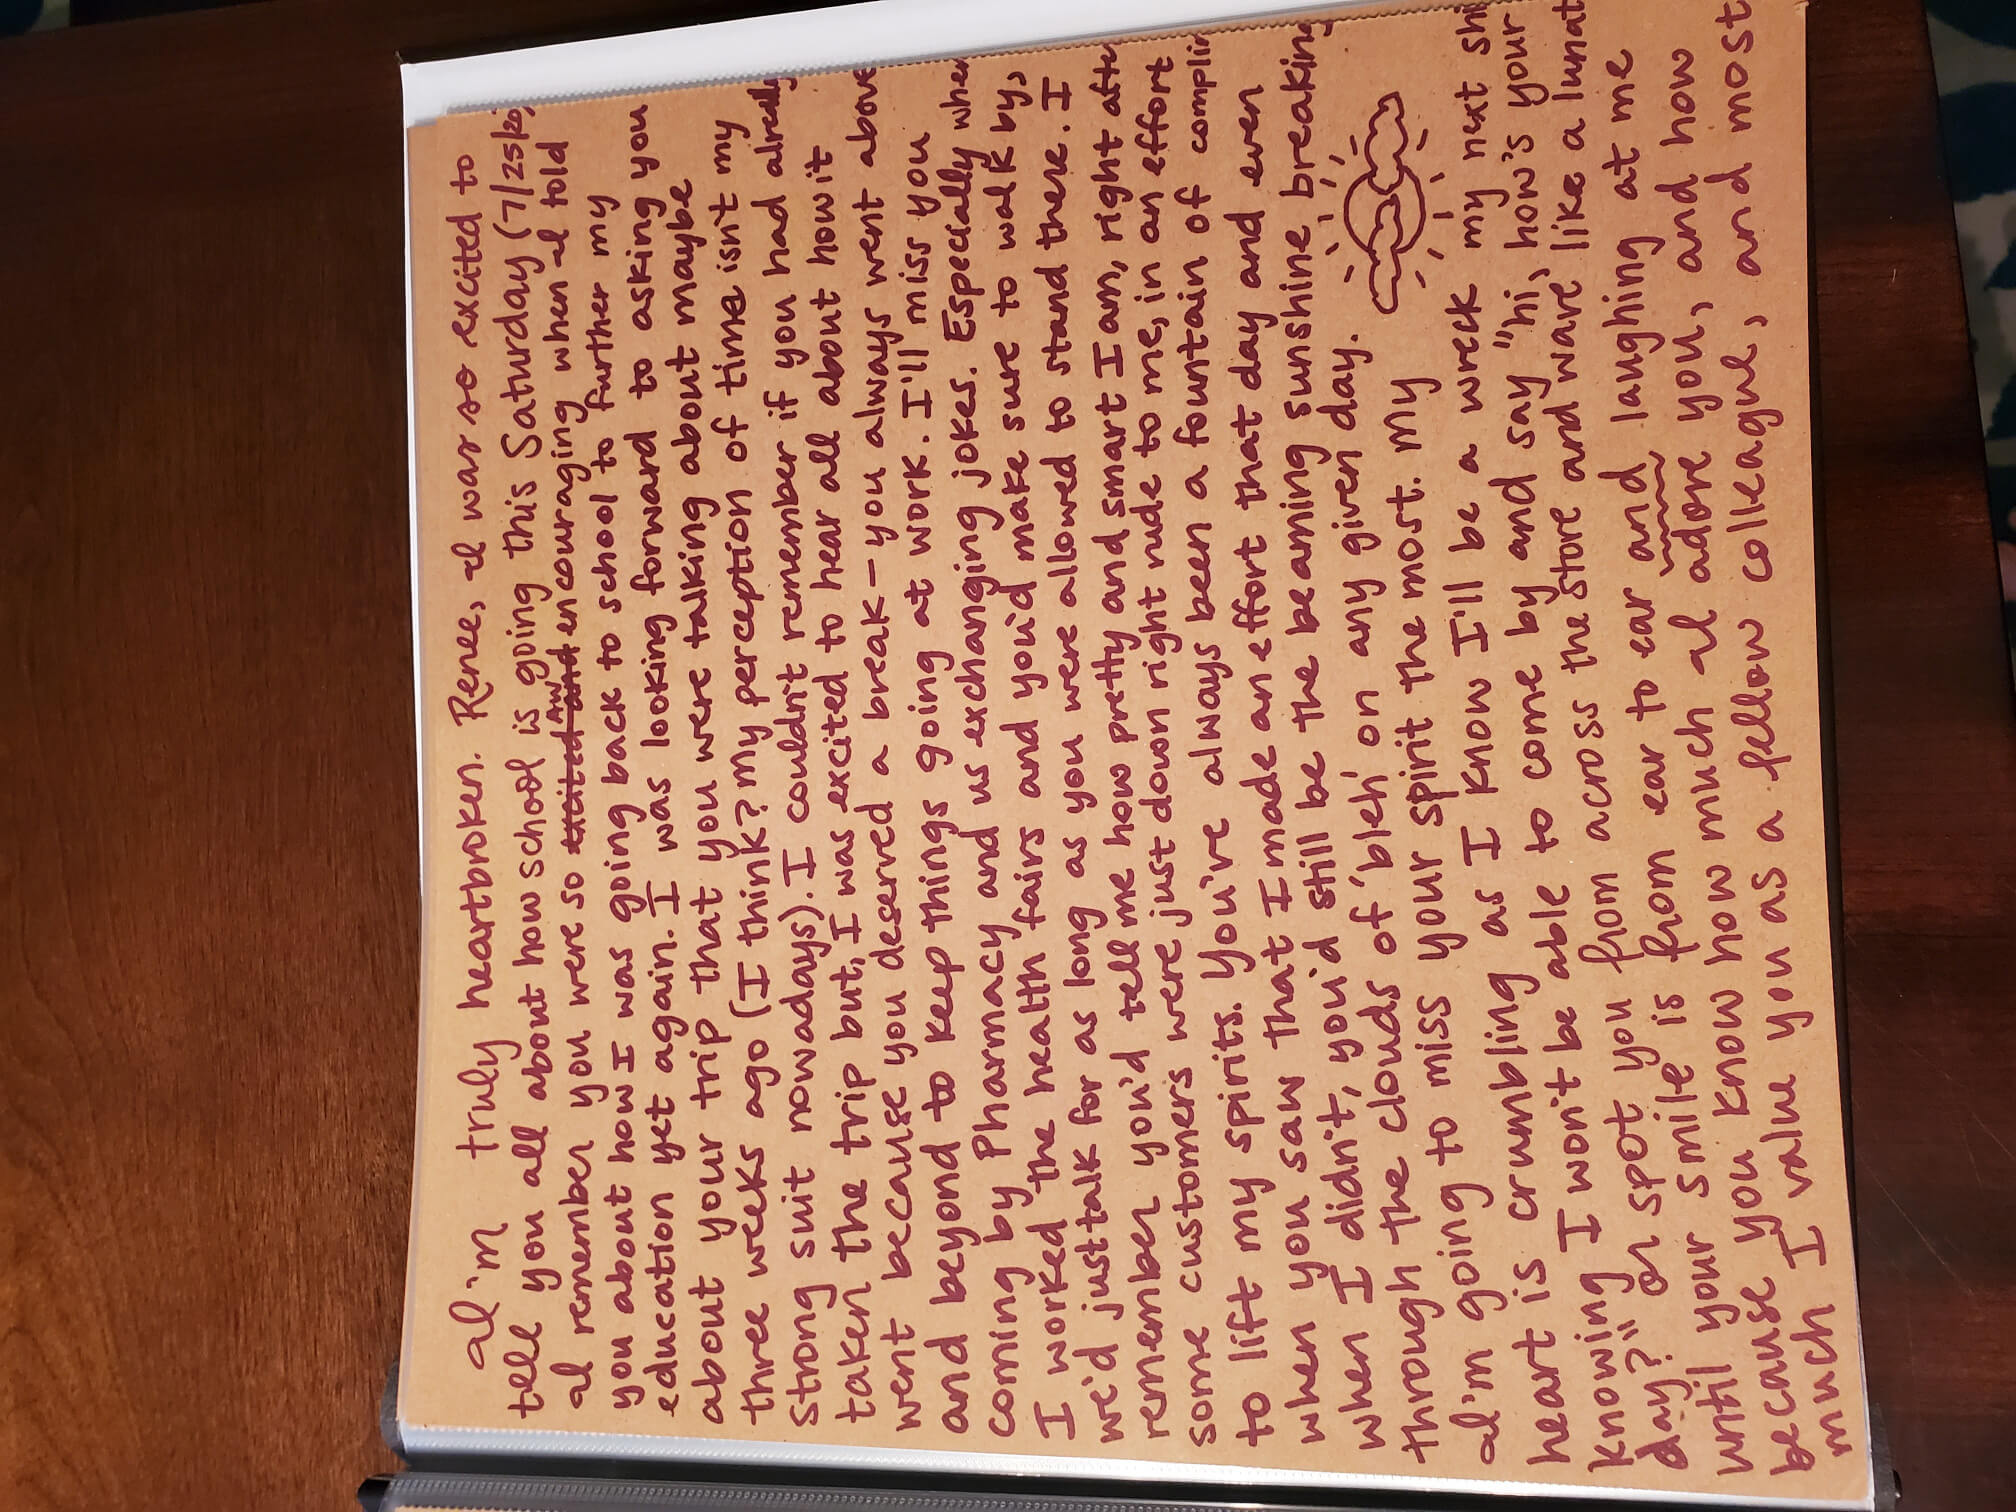 I'm truly heartbroken. Renee, I was so excited to
tell you all about how school is going this Saturday (7/25/20)
I remember you were so excited and Aw encouraging when I told
you about how I was going back to school to further my
education yet again. I was looking forward to asking you
about your trip that you were talking about maybe
three weeks ago (I think? my perception of time isn't my
strong suit nowadays). I couldn't remember if you had already
taken the trip but, I was excited to hear all about how it
went because you deserved a break - you always went above
and beyond to keep things going at work. I'll miss you
coming by Pharmacy and us exchanging jokes. Especially when
I worked the health fairs and you'd make sure to walk by,
we'd just talk for as long as you were allowed to stand there. I
remember you'd tell me how pretty and smart I am, right after
some customers were just down right rude to me, in an effort
to lift my spirits. You've always been a fountain of complim
when you saw that I made an effort that day and even
when I didn't, you'd still be the beaming sunshine breaking
through the clouds of 'bleh' on any given day.
I'm going to miss your spirit the most. My
heart is crumbling as I know I'll be a wreck my next shi
knowing I won't be able to come by and say "hi, how's your
day?" or spot you from across the store and wave like a lunat
until your smile is from ear to ear and laughing at me
because you know how much I adore you, and how
much I value you as a fellow colleague, and most